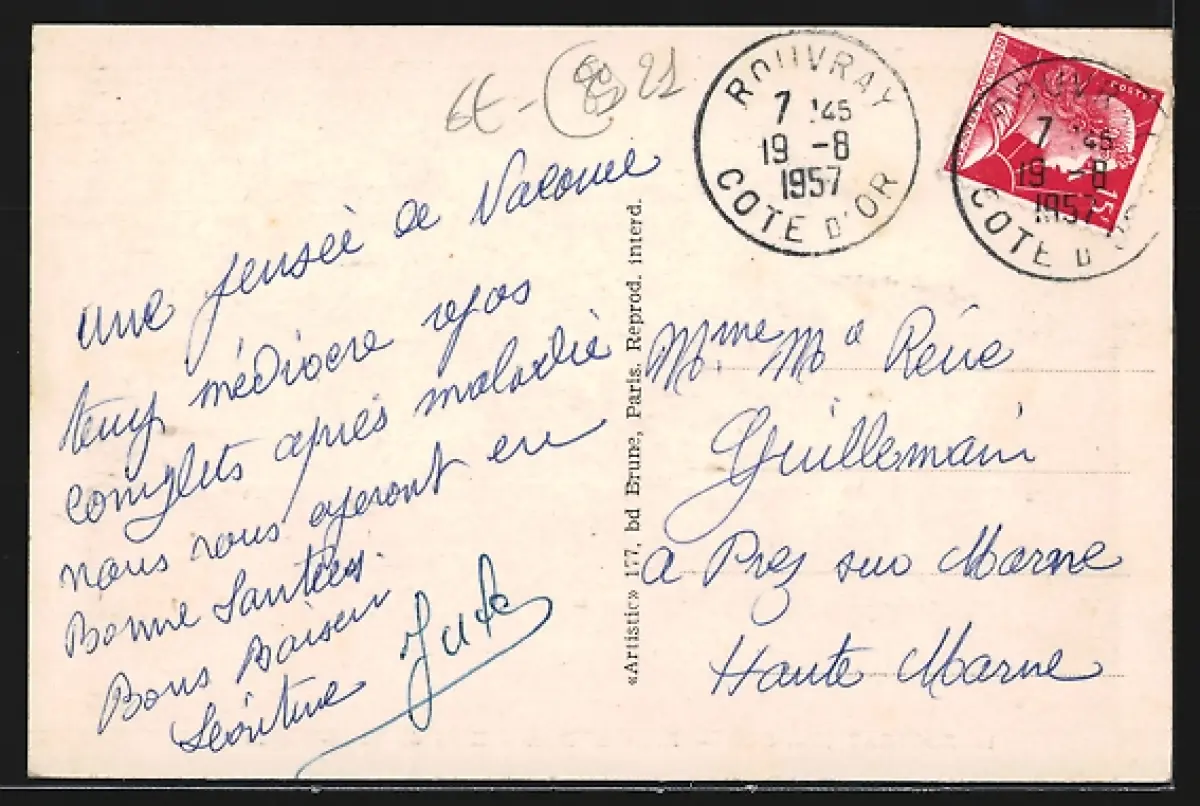 6€ - 21
ROUVRAY
7 45
19 - 8
1957
COTE D'OR
POSTES
15F
ROUVRAY
7 45
19 - 8
1957
COTE D'OR
une pensée de
temps médiocre repos
complets après maladie
nous vous en
Bonne Santées
Bons Baiser
Léontine
«Artistic» 177, bd Brune, Paris. Reprod. interd.
Mme Mr
Guillemain
a Prez sur Marne
Haute Marne